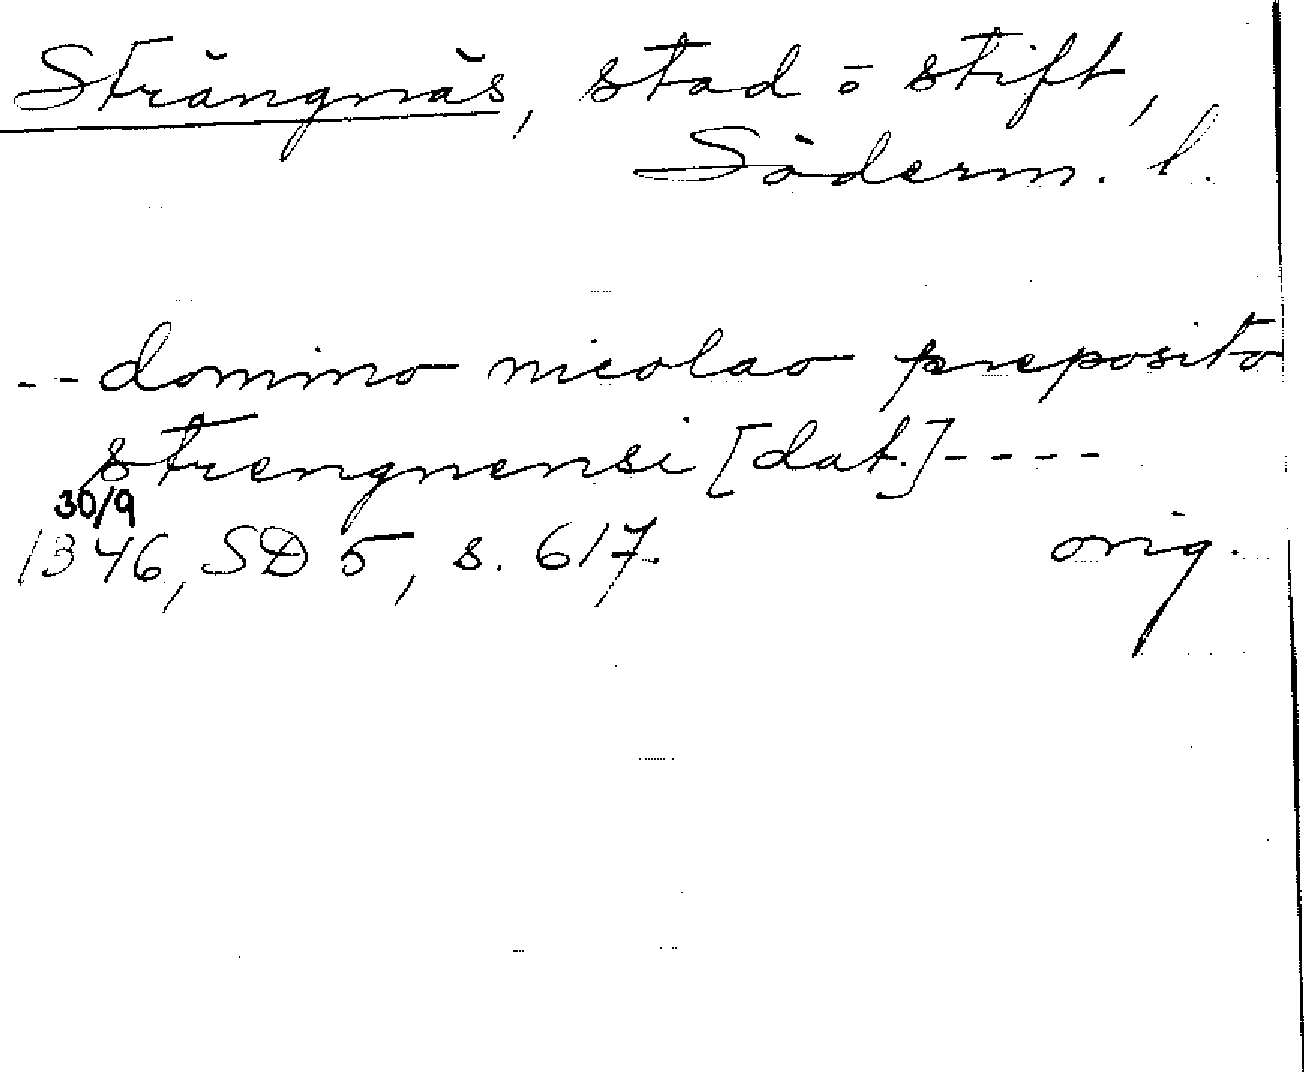 Strängnäs, stad o stift,
Söderm. l.
-- domino nicolao preposito
strengnensi [dat.] ----
30/9
1346, SD 5, s. 617 orig.